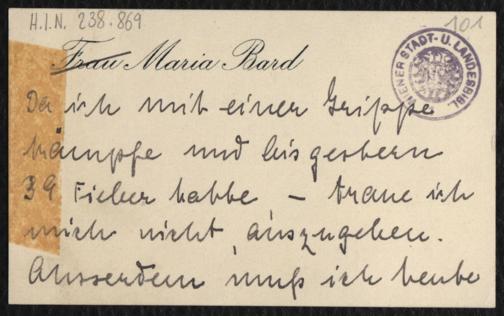 H.I.N. 238.869
101
Frau Maria Bard
WIENER STADT- U. LANDESBIBL.
Da ich mit einer Grippe
kämpfe und bis gestern
39 Fieber hatte – traue ich
mich nicht auszugehen.
Ausserdem muß ich heute